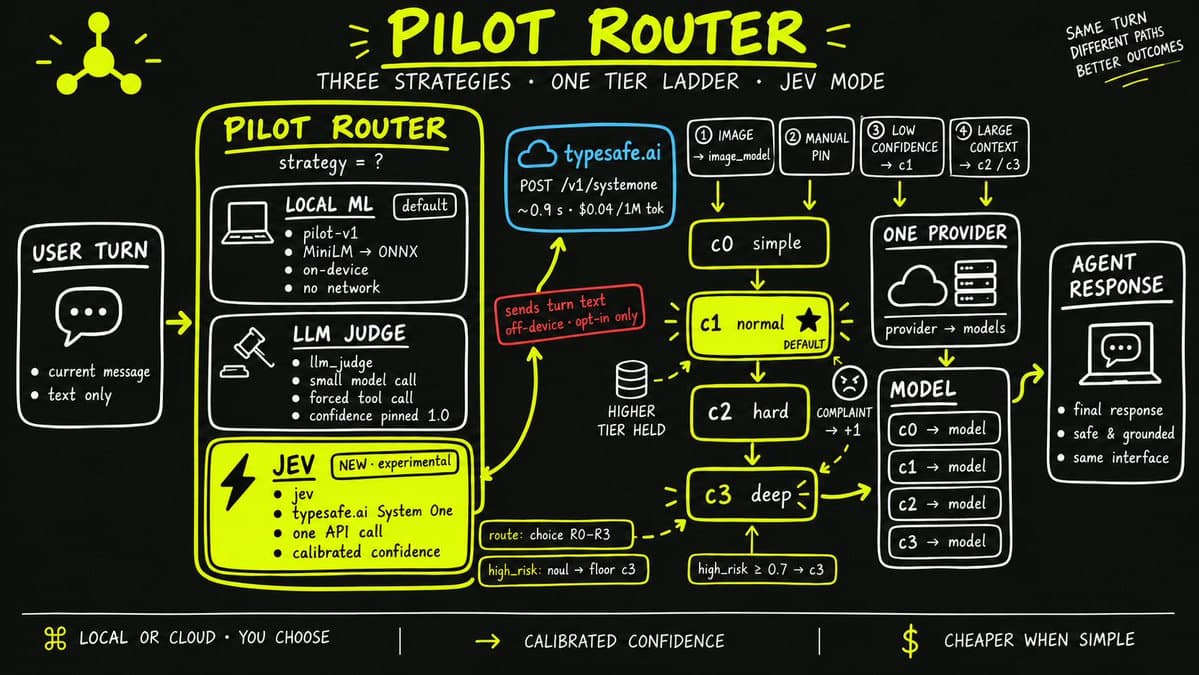 PILOT ROUTER
THREE STRATEGIES · ONE TIER LADDER · JEV MODE
SAME TURN
DIFFERENT PATHS
BETTER OUTCOMES
USER TURN
• current message
• text only
PILOT ROUTER
strategy = ?
LOCAL ML
default
• pilot-v1
• MiniLM → ONNX
• on-device
• no network
LLM JUDGE
• llm_judge
• small model call
• forced tool call
• confidence pinned 1.0
JEV
NEW · experimental
• jev
• typesafe.ai System One
• one API call
• calibrated confidence
typesafe.ai
POST /v1/systemone
~0.9 s · $0.04/1M tok
sends turn text
off-device · opt-in only
route: choice R0-R3
high_risk: noul → floor c3
① IMAGE
→ image_model
② MANUAL
PIN
③ LOW
CONFIDENCE
→ c1
④ LARGE
CONTEXT
→ c2/c3
c0 simple
c1 normal ★
DEFAULT
c2 hard
c3 deep
HIGHER
TIER HELD
COMPLAINT
→ +1
high_risk ≥ 0.7 → c3
ONE PROVIDER
provider → models
MODEL
c0 → model
c1 → model
c2 → model
c3 → model
AGENT
RESPONSE
• final response
• safe & grounded
• same interface
⌘ LOCAL OR CLOUD · YOU CHOOSE
→ CALIBRATED CONFIDENCE
$ CHEAPER WHEN SIMPLE